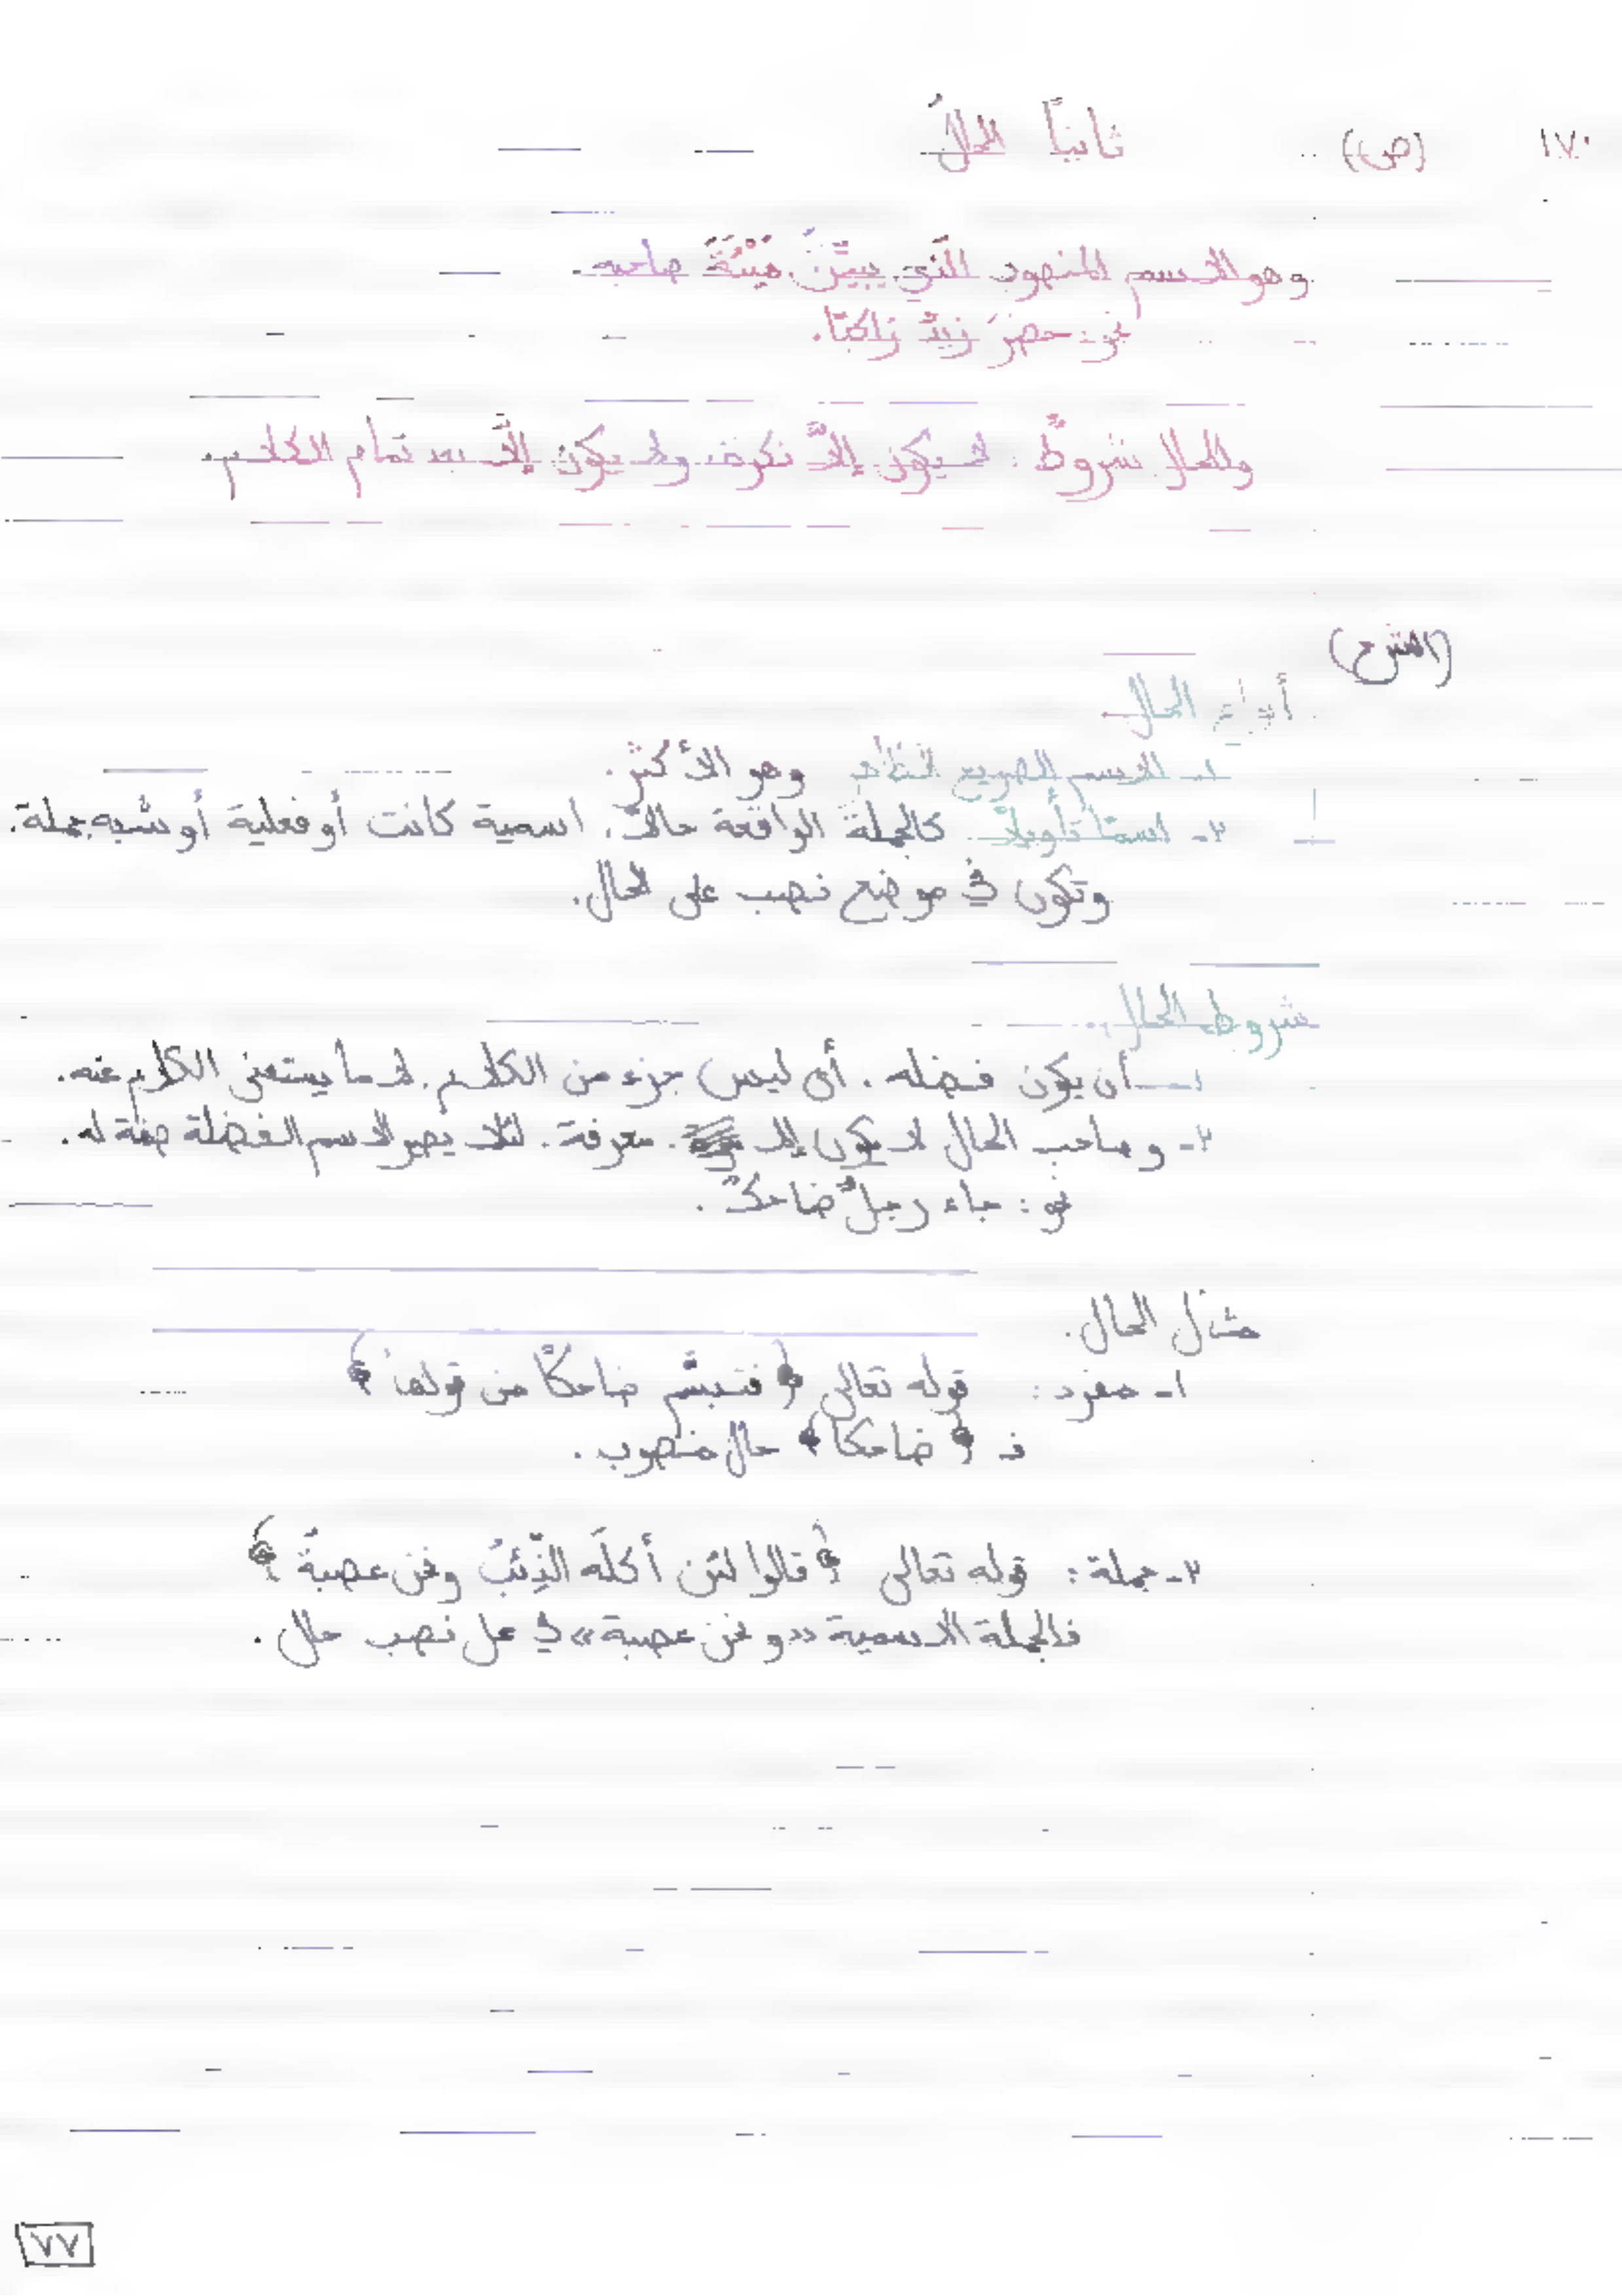 ١٧٠ (ص) ثانياً الحالُ
وهو الاسم المنصوب الذي يبيِّنُ هَيْئَةَ صاحبه.
نحو: حضرَ زيدٌ راكبًا.
وللحال شروطٌ: لا يكون إلاَّ نكرة، ولا يكون إلاَّ بعد تمام الكلام.
(الشرح)
أنواع الحال
١- الاسم الصريح وهو الأكثر.
٢- اسمًا تأويلاً. كالجملة الواقعة حالاً. اسمية كانت أو فعلية أو شبه جملة.
وتكون في موضع نصب على الحال.
شروط الحال..
١- أن يكون فضله. أي ليس جزء من الكلام. لا ما يستغنى الكلام عنه.
٢- وصاحب الحال لا يكون إلا معرفة. لئلا يصير الاسم الفضلة صفة له.
نحو: جاء رجلٌ ضاحكٌ.
مثال الحال.
١- مفرد: قوله تعالى ﴿فتبسَّم ضاحكًا من قولها﴾
فـ ﴿ضاحكا﴾ حال منصوب.
٢- جملة: قوله تعالى ﴿قالوا لئن أكلَه الذِّئبُ ونحن عصبةٌ﴾
فالجملة الاسمية «ونحن عصبة» في محل نصب حال.
٧٧